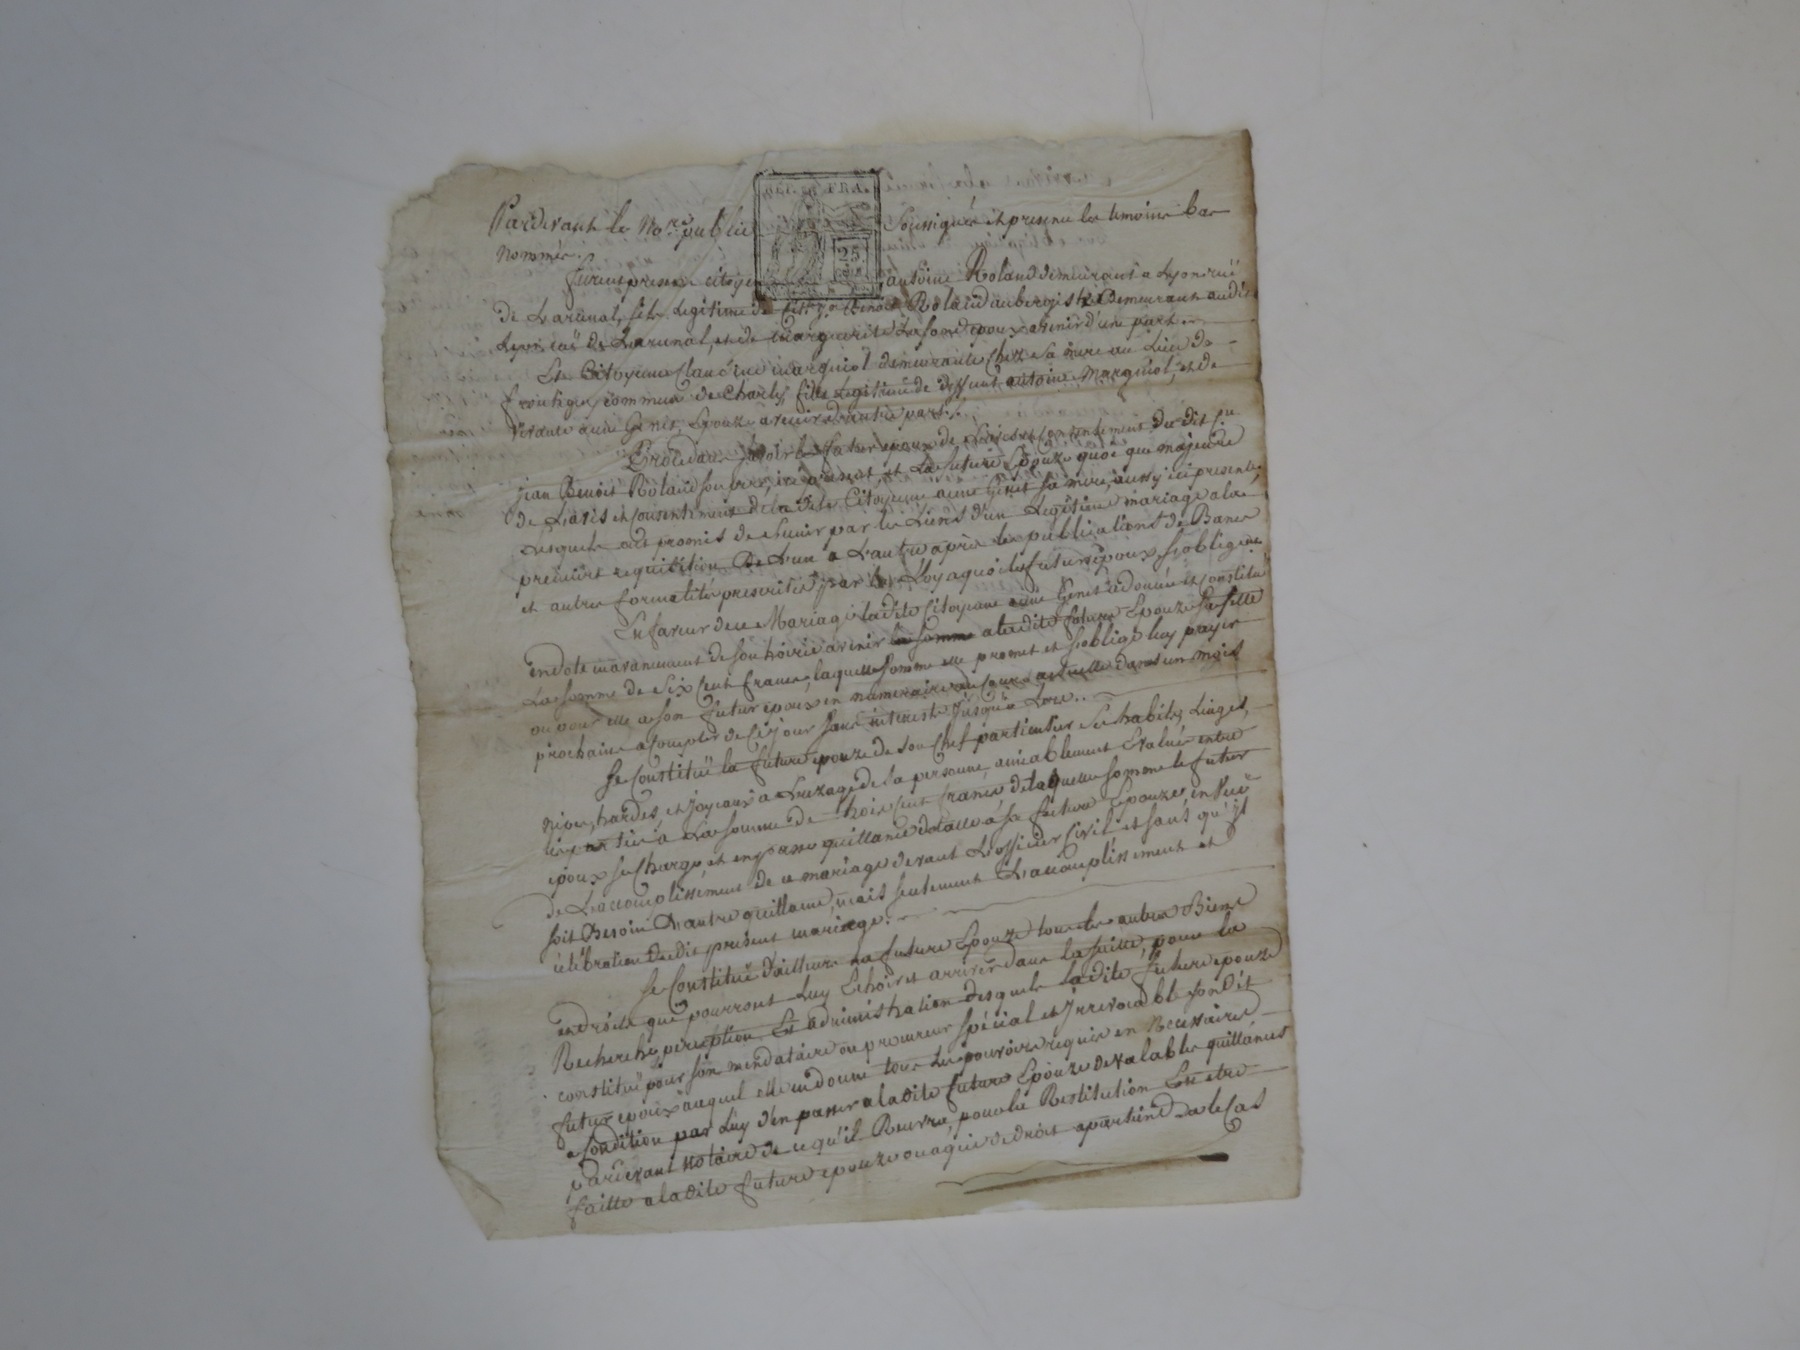 Pardevant le No.re public Soussigné et presens les temoins bas
nommés.
furent presens citoyen antoine Roland demeurant a Lyon ruë
de Larsenal, fils Legitime de Benoit Roland aubergiste demeurant audit
Lyon ruë de Larsenal, et de marguerite Lafond epoux avenir d'une part.
Et Citoyenne Claudine marguiol demeurante chez sa mere au Lieu de
frontigny commune de Charly fille Legitime de deffunt antoine Marguiol, et de
vivante anne Genet, Epouze avenir d'autre part.
Procedans savoir le futur epoux de Lavis et Consentement du dit Cn.
jean Benoit Roland son pere, ici present, et La future Epouze quoi que majeure
de Lavis et consentement de la dite Citoyenne anne Genet sa mere, aussy ici presente,
Lesquels ont promis de s'unir par les Liens d'un Legitime mariage a la
premiere requisition De L'un a L'autre après les publications de Bans
et autres formalités prescrites par les Loy a quoi les futurs epoux s'obligent,
En faveur de ce Mariage ladite Citoyenne anne Genet a donné et constitué
en dot en avancement de son hoirie avenir la somme a ladite future Epouze sa fille
La somme de six Cent francs, laquelle somme elle promet et s'oblige luy payer
ou pour elle a son futur epoux en numeraire au cours actuelle dans un mois
prochain a Compter de ce jour sans interests jusqu'a Lors.
Se Constituë la future epouze de son Chef particulier ses habits, Linges,
nipes, hardes, et joyeaux a Luzage de sa personne, amiablement Evalués entre
les parties a La somme de trois Cent francs de laquelle somme le futur
epoux se Charge, et en passe quittance dotalle a sa future Epouze, en Vuë
de Lacomplissement de ce mariage devant L'officier Civil et sans qu'il
soit Besoin D'autre quittance, mais seulement L'acomplissement et
célébration dudit présent mariage.
Se Constituë d'ailleurs La future Epouze tous les autres Biens
et droits qui pourront Luy Echoir et arriver dans la suitte, pour la
Recherche, perception Et administration desquels ladite future epouze
constituë pour son mendataire ou procureur spécial et Irrevocable son dit
futur epoux auquel elle en donne tous Les pouvoirs requis en Necessaires
a Condition par Luy d'en passer a ladite future Epouze de valables quittances
pardevant notaire de ce qu'il Recevra, pour la Restitution En etre
faitte a ladite future epouze ou a qui de droit apartiendra le Cas
25